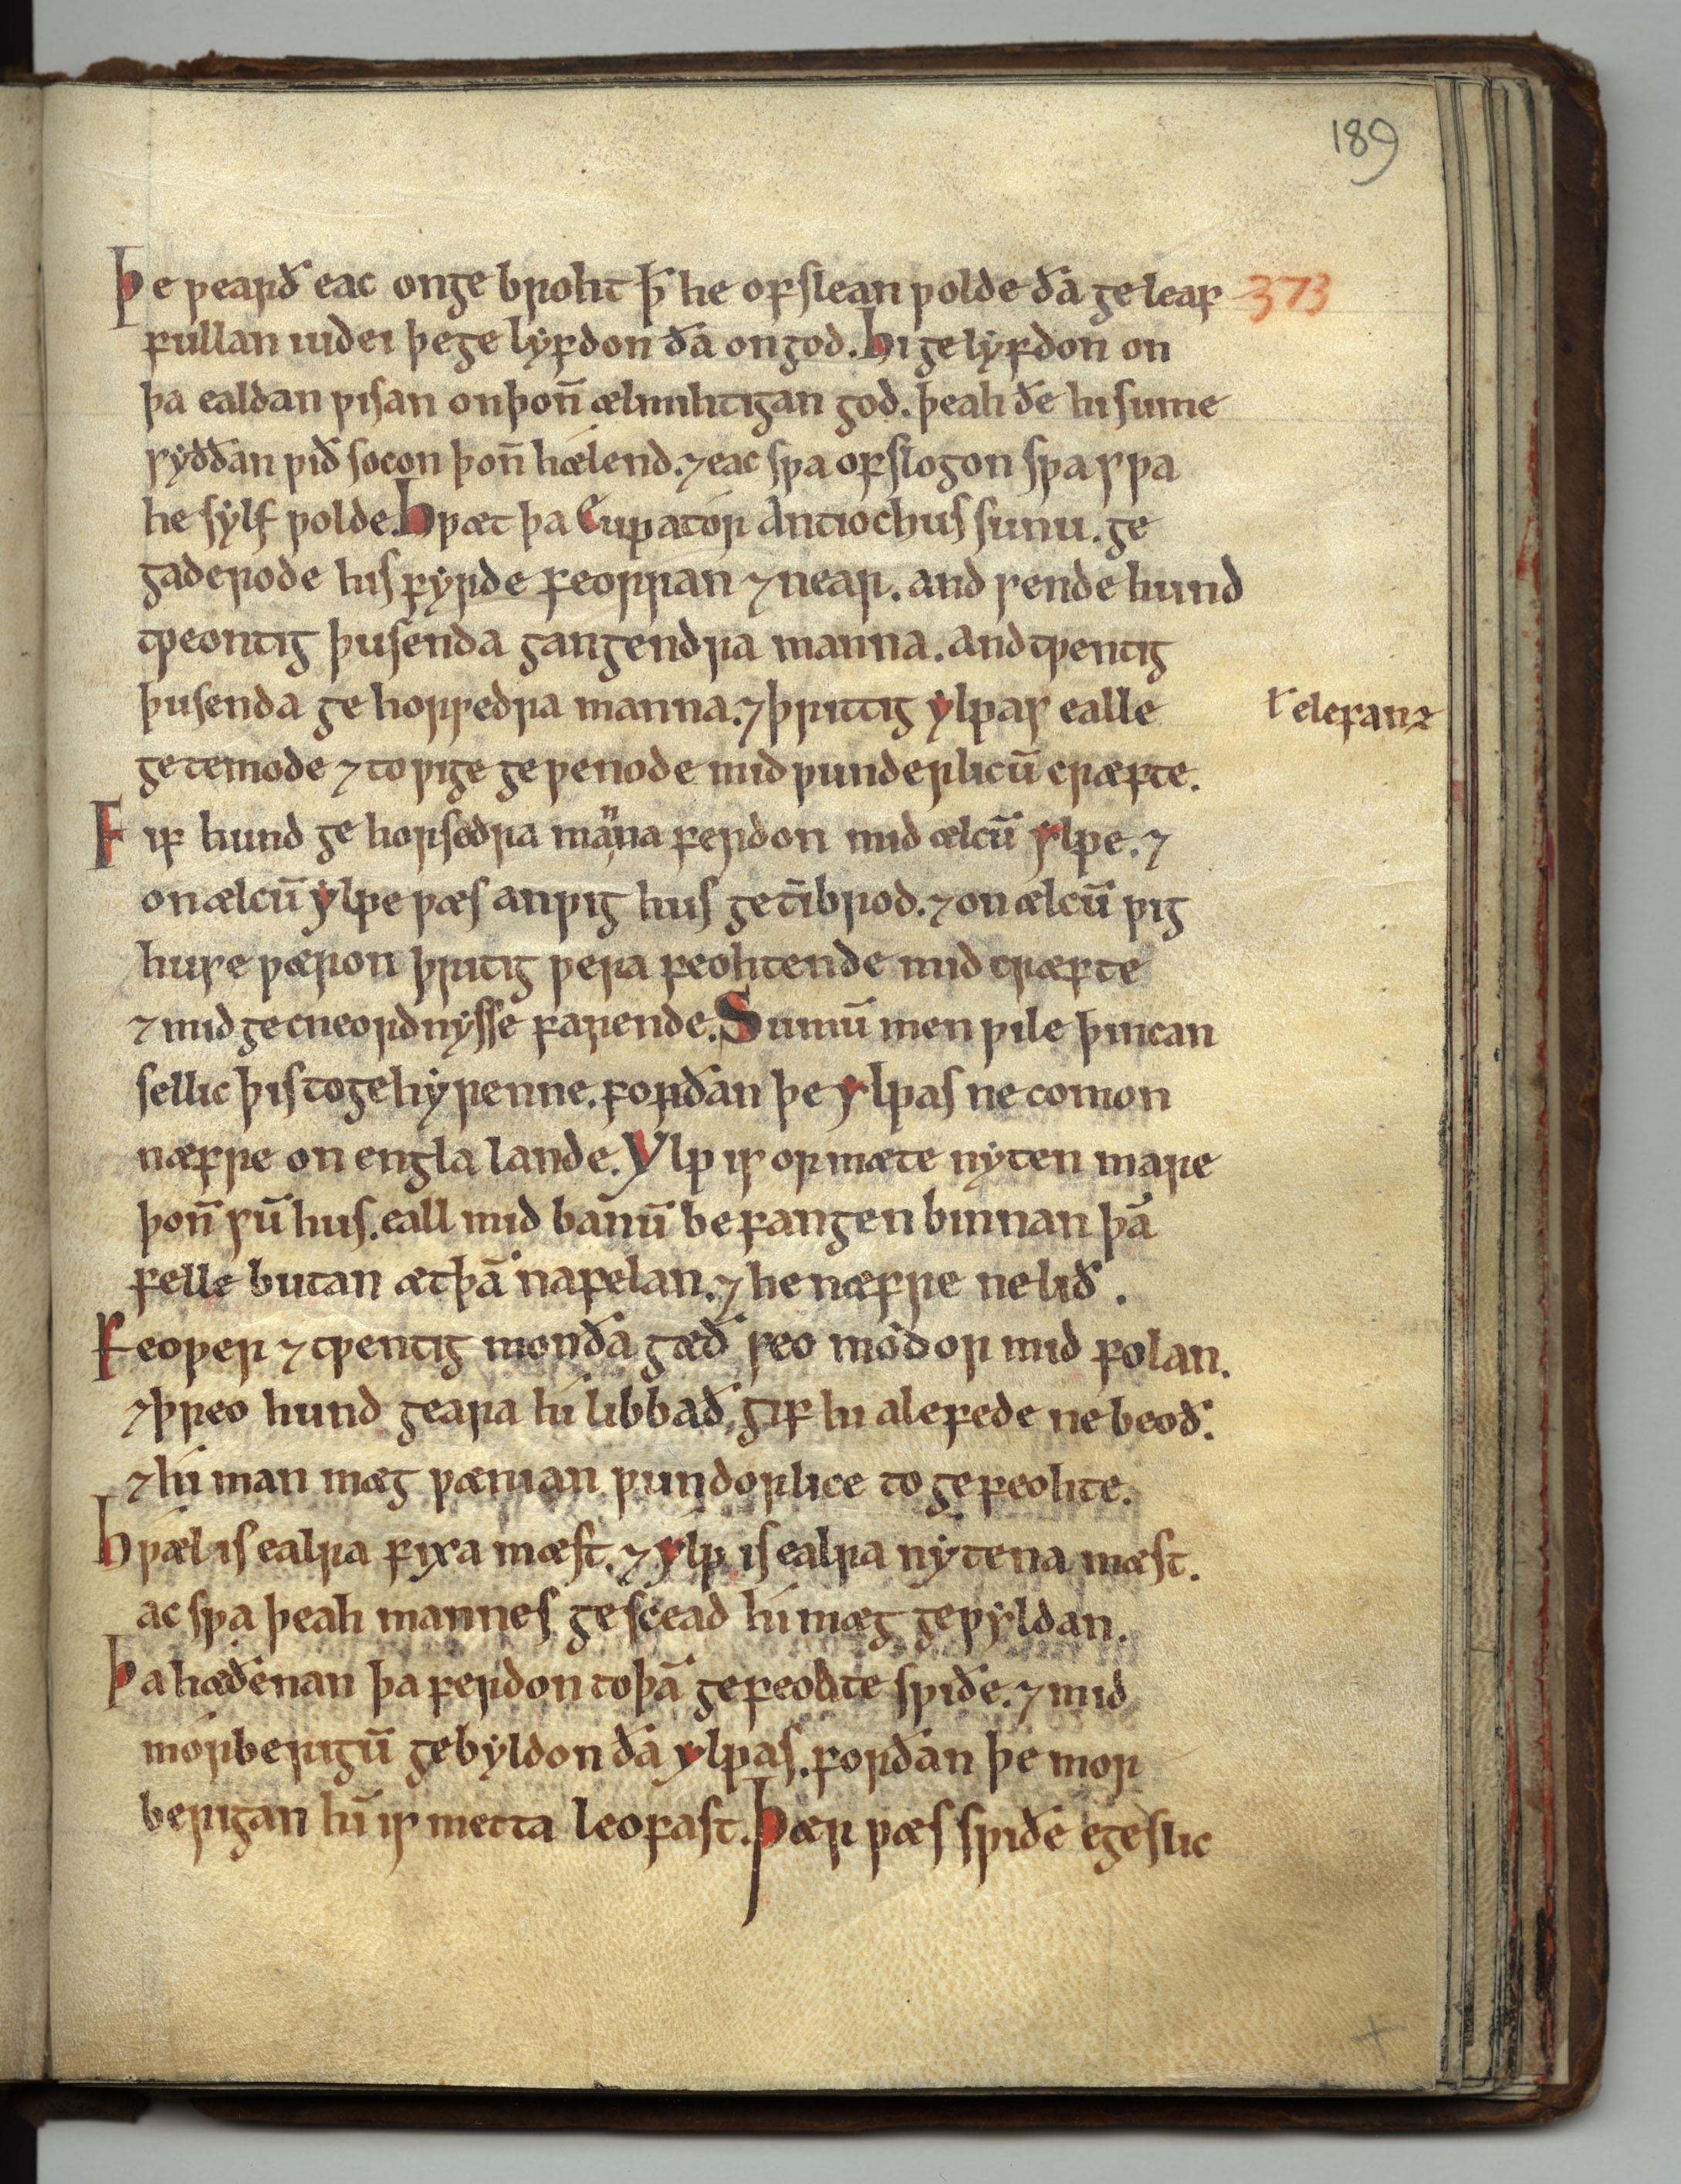 189
Þe ƿearð eac onge broht ꝥ he ofslean ƿolde ða ge leaf 373
fullan iudei þege lyfdon ða ongod. Hi ge lyfdon on
þa ealdan ƿisan onþon̄ ælmihtigan god. þeah ðe hi sume
syððan ƿið socon þon̄ hælend. ⁊ eac sƿa ofslogon sƿa sƿa
he sylf ƿolde. Hƿæt þa Eupator Antiochus sunu. ge
gaderode his fyrde feorran ⁊ near. and sende hund
tƿeontig þusenda gangendra manna. and tƿentig
þusenda ge horsedra manna. ⁊ þrittig ylpas ealle ł elefanz
ge temode ⁊ to ƿige ge ƿenode mid ƿunderlicū cræfte.
Fif hund ge horsedra mańna ferdon mid ælcū ylpe. ⁊
on ælcū ylpe ƿæs anƿig hus ge tībrod. ⁊ on ælcū ƿig
huse ƿæron þritig ƿera feohtende mid cræfte
⁊ mid ge cneordnysse farende. Sumū men ƿile þincan
sellic þis togehyrenne. forðan þe ylpas ne comon
næfre on engla lande. Ylp is ormæte nyten mare
þon̄ sū hus. eall mid banū befangen binnan þā
felle butan æt þā nafelan. ⁊ he næfre ne lið.
Feoƿer ⁊ tƿentig monða gæð seo modor mid folan.
⁊ þreo hund geara hi libbað, gif hi alefede ne beoð.
⁊ hi man mæg ƿænian ƿundorlice to gefeohte.
Hƿæl is ealra fixa mæst. ⁊ ylp is ealra nytena mæst.
ac sƿa þeah mannes gescead hi mæg geƿyldan.
Þa hæðenan þa ferdon toþā gefeohte sƿiðe. ⁊ mid
morberigū gebyldon ða ylpas. forðan þe mor
berigan hī is metta leofast. Þær ƿæs sƿiðe egeslic